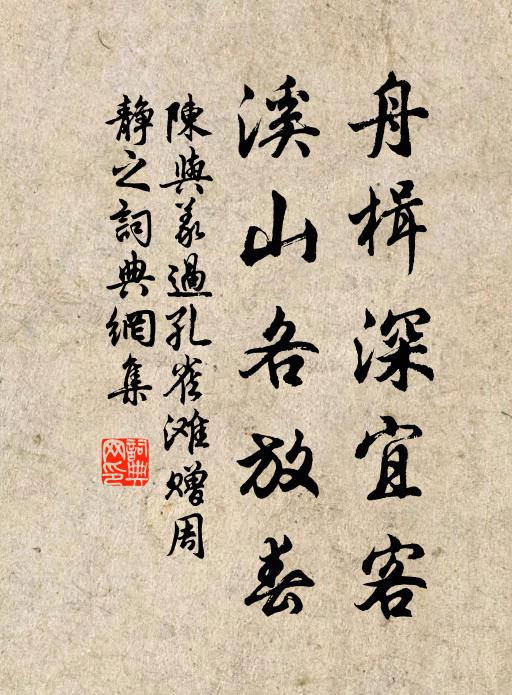 舟楫深宜客
溪山各放春
陳與義過孔雀滩赠周
靜之詞典網集
詞典
网印